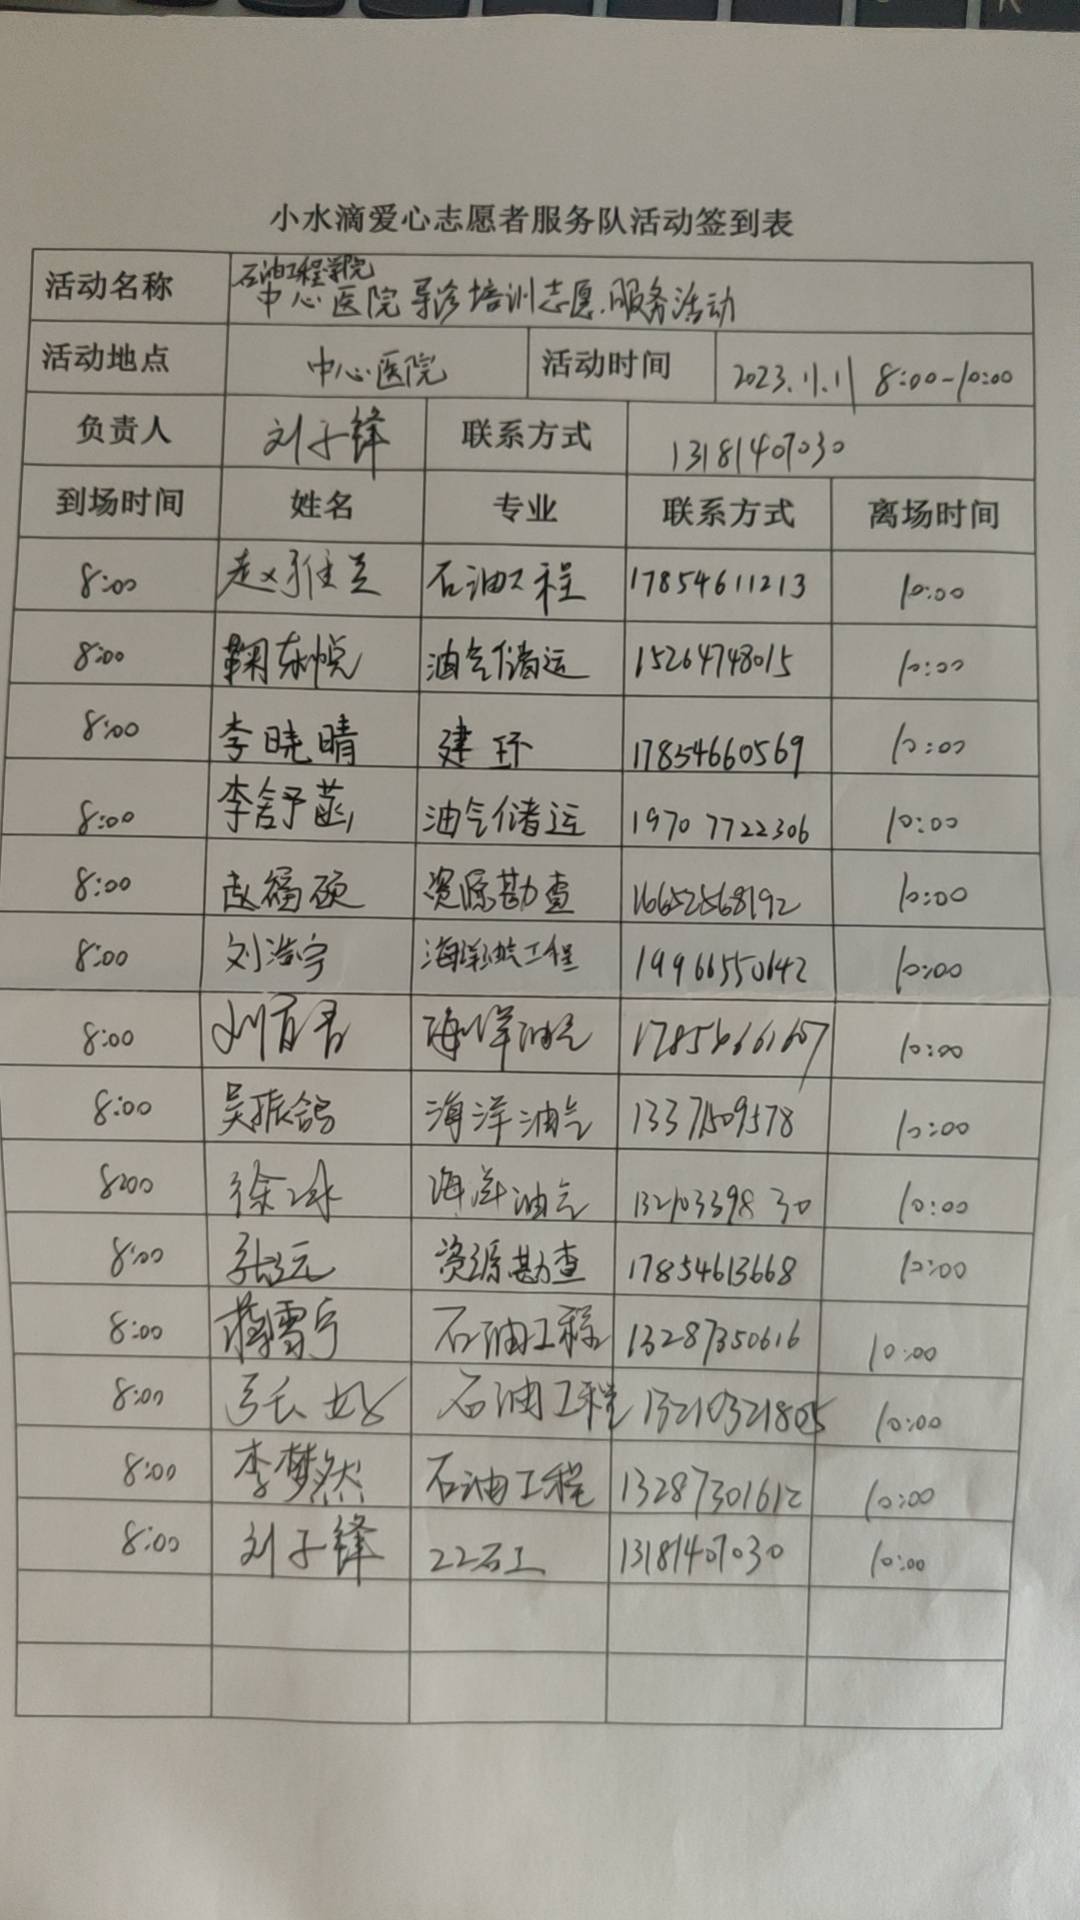 小水滴爱心志愿者服务队活动签到表
活动名称 石油工程学院
中心医院导诊培训志愿服务活动
活动地点 中心医院 活动时间 2023.11.11 8:00-10:00
负责人 刘子锋 联系方式 13181407030
到场时间 姓名 专业 联系方式 离场时间
8:00 石油工程 17854611213 10:00
8:00 鞠东悦 油气储运 15264748015 10:00
8:00 李晓晴 建环 17854660569 10:00
8:00 李舒菡 油气储运 19707722306 10:00
8:00 赵福硕 资源勘查 16652568192 10:00
8:00 刘浩宇 海洋油气工程 19966550642 10:00
8:00 海洋油气 10:00
8:00 吴振鸽 海洋油气 13371509578 10:00
8:00 徐冰 海洋油气 13210339830 10:00
8:00 张远 资源勘查 17854613668 10:00
8:00 蒋雪宁 石油工程 13287350616 10:00
8:00 石油工程 13210321805 10:00
8:00 李梦然 石油工程 13287301612 10:00
8:00 刘子锋 22石工 13181407030 10:00